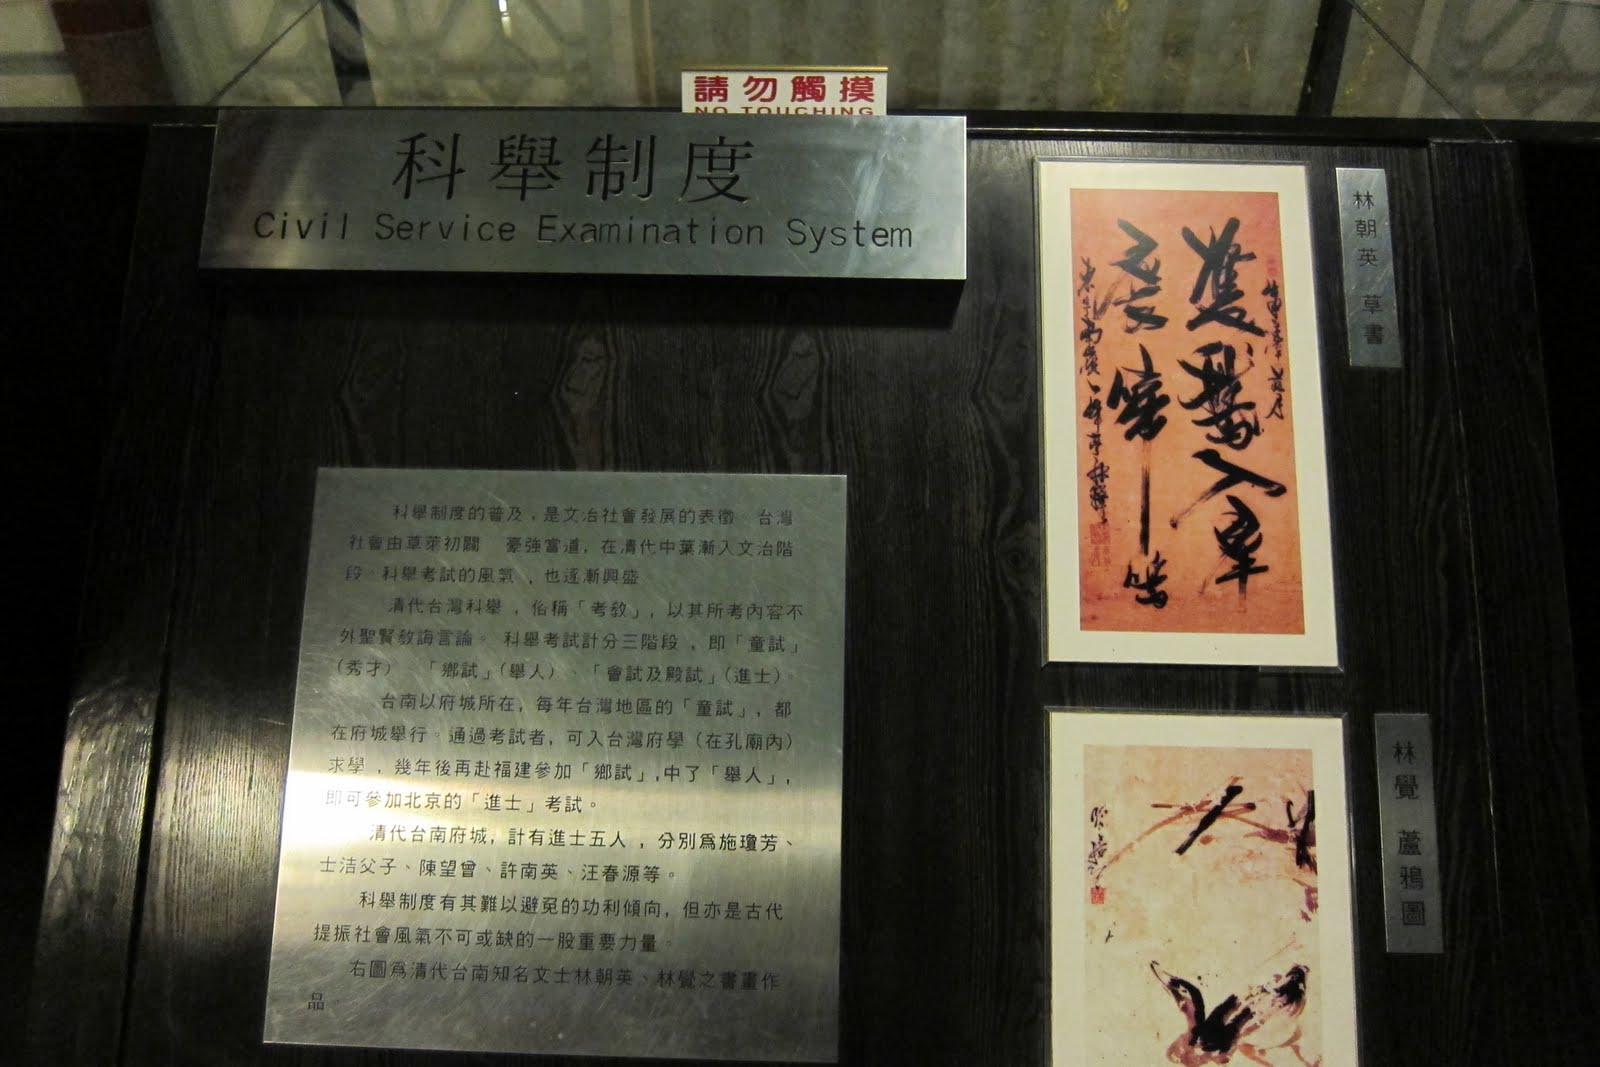 請勿觸摸
NO TOUCHING
科舉制度
Civil Service Examination System
科舉制度的普及，是文治社會發展的表徵。台灣
社會由草萊初闢 豪強當道，在清代中葉漸入文治階
段。科舉考試的風氣，也逐漸興盛
清代台灣科舉，俗稱「考教」，以其所考內容不
外聖賢教誨言論。科舉考試計分三階段，即「童試」
（秀才）、「鄉試」（舉人）、「會試及殿試」（進士）。
台南以府城所在，每年台灣地區的「童試」，都
在府城舉行。通過考試者，可入台灣府學（在孔廟內）
求學，幾年後再赴福建參加「鄉試」，中了「舉人」，
即可參加北京的「進士」考試。
清代台南府城，計有進士五人，分別爲施瓊芳、
士洁父子、陳望曾、許南英、汪春源等。
科舉制度有其難以避免的功利傾向，但亦是古代
提振社會風氣不可或缺的一股重要力量。
右圖爲清代台南知名文士林朝英、林覺之書畫作
品。
林朝英 草書
林覺 蘆鴉圖